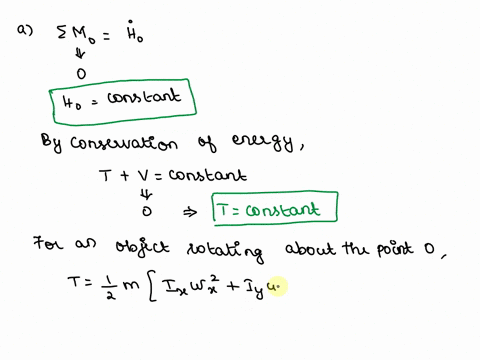 a) ΣM₀ = Ḣ₀
⇓
0
H₀ = constant
By conservation of energy,
T + V = constant
⇓
0 ⇒ T = constant
For an object rotating about the point O,
T = 1/2 m [ Iₓ ωₓ² + I_y